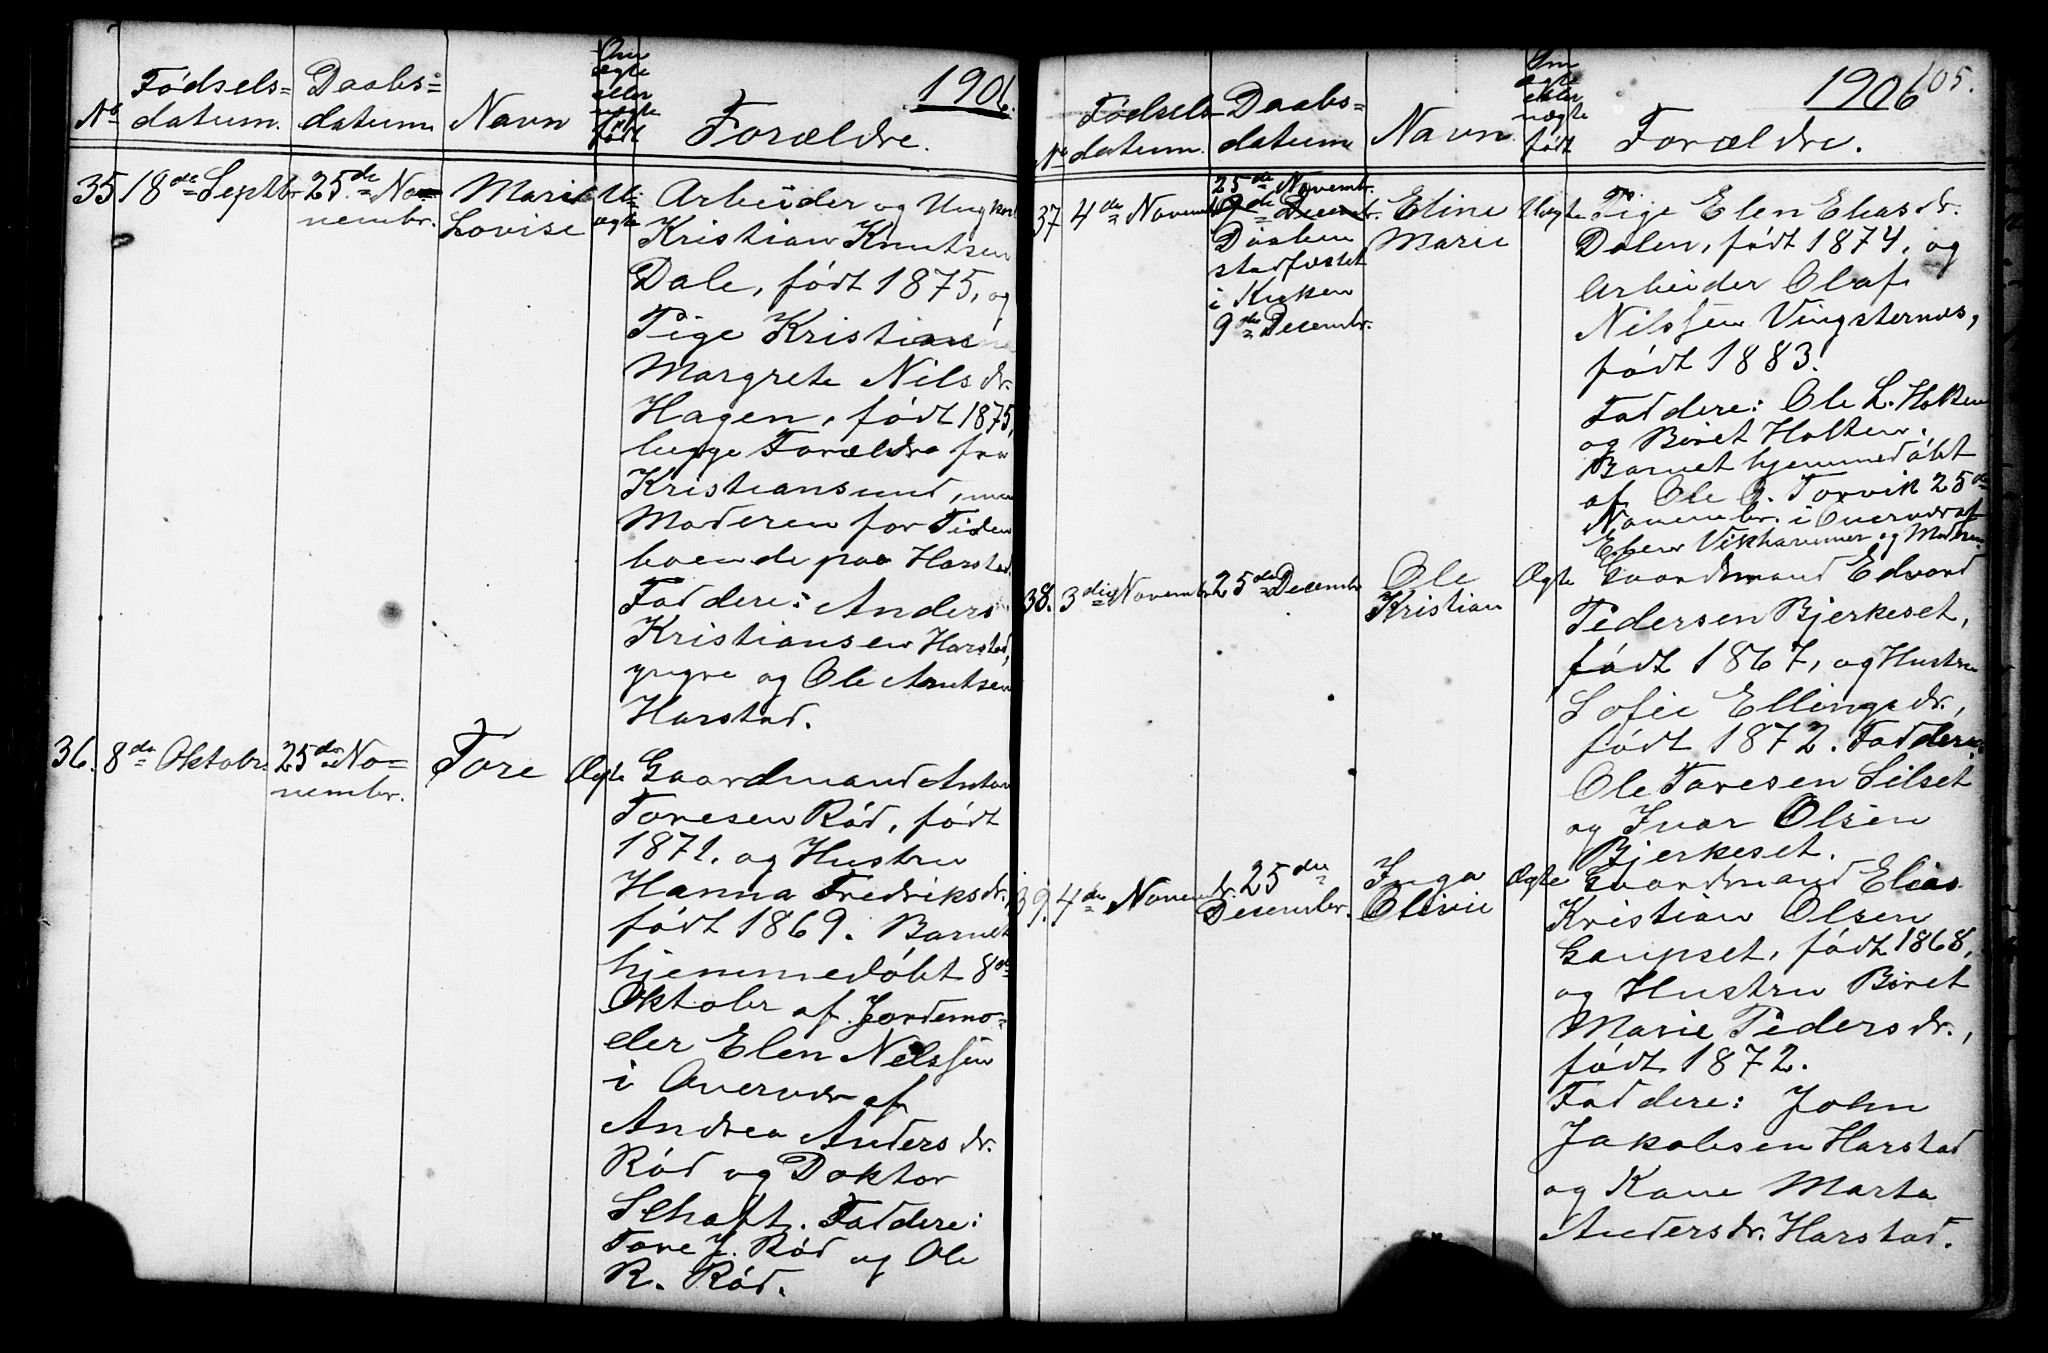 1906.
No
Fødsels=
datum.
Daabs=
datum
Navn
Om
ægte
eller
uægte
født
Forældre.
35
18de Septbr
25de No=
vembr.
Marie
Lovise
U=
ægte
Arbeider og Ungkarl
Kristian Knutsen
Dale, født 1875, og
Pige Kristianne
Margrete Nilsdr.
Hagen, født 1875,
begge Forældre fra
Kristiansund, men
Moderen for Tiden
boende paa Harstad.
Faddere: Anders
Kristiansen Harstad,
yngre og Ole Arntsen
Harstad.
36.
8de Oktobr.
25de No=
vembr.
Tore
Ægte
Gaardmand Anton
Toresen Rød, født
1871. og Hustru
Hanna Fredriksdr.,
født 1869. Barnet
hjemmedøbt 8de
Oktobr af Jordemo=
der Elen Nilssen
i Overvær af
Andrea Andersdr.
Rød og Doktor
Schaft. Faddere:
Tore J. Rød og Ole
R. Rød.
1906
105.
No
Fødsels
datum.
Daabs=
datum
Navn
Om
ægte
eller
uægte
født
Forældre.
37
4de Novembr
25de Novembr.
9de Decembr.
Daaben
stadfæstet
i Kirken
9de Decembr.
Eline
Marie
Uægte
Pige Elen Eliasdr.
Dalen, født 1874. og
Arbeider Olaf
Nilssen Vingsternes,
født 1883.
Faddere: Ole L. Holten
og Beret Holten.
Barnet hjemmedøbt
af Ole G. Torvik 25de
Novembr. i Overvær af
Vikhammer og Moderen.
38.
3die Novembr
25de Decembr
Ole
Kristian
Ægte
Gaardmand Edvard
Pedersen Bjerkeset,
født 1867, og Hustru
Sofie Ellingsdr.,
født 1872. Faddere:
Ole Toresen Silset
og Ivar Olsen
Bjerkeset.
39.
4de Novembr.
25de
Decembr.
Inga
Olivie
Ægte
Gaardmand Elias
Kristian Olsen
Gaupset, født 1868,
og Hustru Beret
Marie Pedersdr.,
født 1872.
Faddere: John
Jakobsen Harstad
og Kone Marta
Andersdr. Harstad.